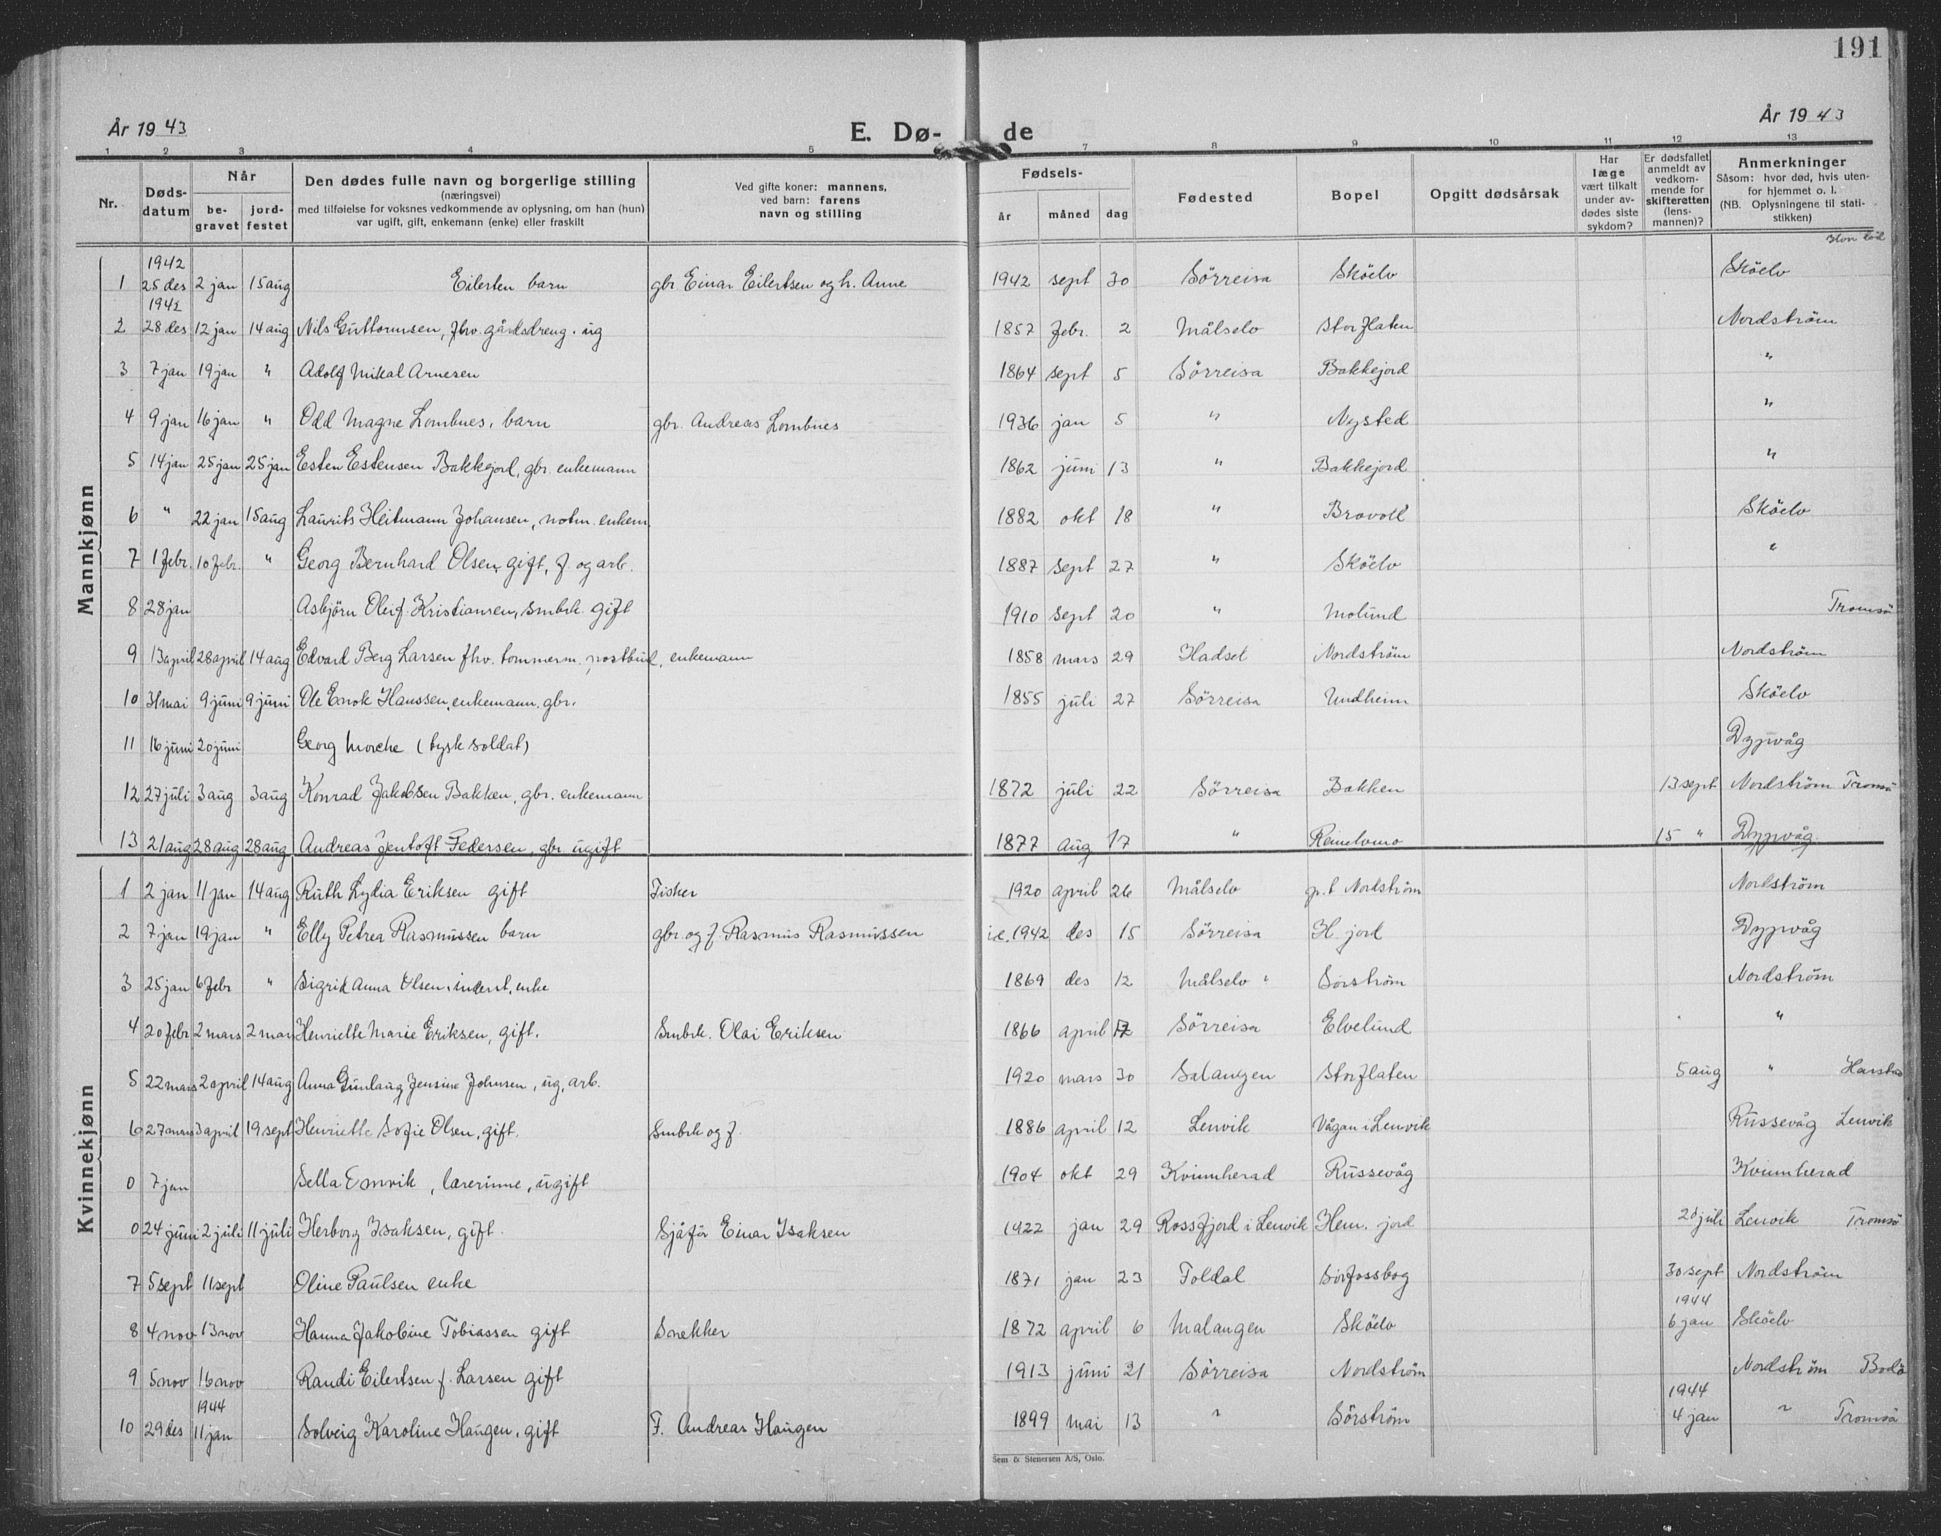 191
År 1943
E. Dø-
de
År 1943
1 2 3 4 5 7 8 9 10 11 12 13
Nr. Døds-datum Når be-gravet jord-festet Den dødes fulle navn og borgerlige stilling (næringsvei) med tilføielse for voksnes vedkommende av oplysning, om han (hun) var ugift, gift, enkemann (enke) eller fraskilt Ved gifte koner: mannens, ved barn: farens navn og stilling Fødsels- år måned dag Fødested Bopel Opgitt dødsårsak Har læge vært tilkalt under av-dødes siste sykdom? Er dødsfallet anmeldt av vedkom-mende for skifteretten (lens-mannen)? Anmerkninger Såsom: hvor død, hvis uten-for hjemmet o. l. (NB. Oplysningene til stati-stikken)
Mannkjønn
1 1942 25 des 2 jan 15 aug Eilertsen barn gbr Einar Eilertsen og h. Anne 1942 sept 30 Sörreisa Sköelv Sköelv
2 1942 28 des 12 jan 14 aug Nils Guttormsen, fhv. gårdsdreng. ug 1857 febr. 2 Målselv Storflaten Nordström
3 7 jan 19 jan " Adolf Mikal Arnesen 1864 sept 5 Sörreisa Bakkejord "
4 9 jan 16 jan " Odd Magne Lombnes, barn gbr. Andreas Lombnes 1936 jan 5 " Nysted "
5 14 jan 25 jan 25 jan Esten Estensen Bakkejord, gbr. enkemann 1862 juni 13 " Bakkejord "
6 " 22 jan 15 aug Laurits Heitmann Johansen, notm. enkem 1882 okt 18 " Bravoll Sköelv
7 1 febr. 10 febr. " Georg Bernhard Olsen, gift, f. og arb. 1887 sept 27 " Sköelv "
8 28 jan Asbjörn Oleif Kristiansen, smbrk. gift 1910 sept 20 " Molund Tromsö
9 13 april 28 april 14 aug Edvard Berg Larsen fhv. tommerm. postbud, enkemann 1858 mars 29 Hadsel Nordström Nordström
10 31 mai 9 juni 9 juni Ole Enok Hanssen, enkemann, gbr. 1855 juli 27 Sörreisa Undheim Sköelv
11 16 juni 20 juni Georg Morche (tysk soldat) Dypvåg
12 27 juli 3 aug 3 aug Konrad Jakobsen Bakken, gbr. enkemann 1872 juli 22 Sörreisa Bakken 13 sept Nordström Tromsö
13 21 aug 28 aug 28 aug Andreas Jentoft Pedersen, gbr ugift 1877 aug 17 " Reinelvmo 15 " Dypvåg
Kvinnekjønn
1 2 jan 11 jan 14 aug Ruth Lydia Eriksen gift Fisker 1920 april 26 Målselv gr. t Nordström Nordström
2 7 jan 19 jan " Elly Petrea Rasmussen barn gbr og f Rasmus Rasmussen i.e. 1942 des 15 Sörreisa H. jord Dypvåg
3 25 jan 6 febr " Sigrid Anna Olsen, underst. enke 1869 des 12 Målselv " Sörström Nordström
4 20 febr 2 mars 2 mar Henriette Marie Eriksen, gift. Smbrk. Olai Eriksen 1866 april 17 Sörreisa Elvelund "
5 22 mars 2 april 14 aug Anna Gunlaug Jensine Johnsen, ug, arb. 1920 mars 30 Salangen Storflaten 5 aug " Harstad
6 27 mars 3 april 19 sept Henriette Sofie Olsen, gift. Smbrk og f. 1886 april 12 Lenvik Vågan i Lenvik Russevåg Lenvik
0 7 jan Sella Emvik, lærerinne, ugift 1904 okt 29 Kvinnherad Russevåg Kvinnherad
0 24 juni 2 juli 11 juli Herborg Isaksen, gift. Sjåför Einar Isaksen 1922 jan 29 Rossfjord i Lenvik Hem. jord 20 juli Lenvik Tromsö
7 5 sept 11 sept Oline Paulsen enke 1871 jan 23 Foldal Sörfossbog 30 sept Nordström
8 4 nov 13 nov Hanna Jakobine Tobiassen gift Snekker 1872 april 6 Malangen Sköelv 1944 6 jan Sköelv
9 5 nov 16 nov Randi Eilertsen f. Larsen gift 1913 juni 21 Sörreisa Nordström Nordström Bodö
10 29 des 1944 11 jan Solveig Karoline Haugen, gift F. Andreas Haugen 1899 mai 13 " Sörström 1944 4 jan " Tromsö
Sem & Stenersen A/S, Oslo.